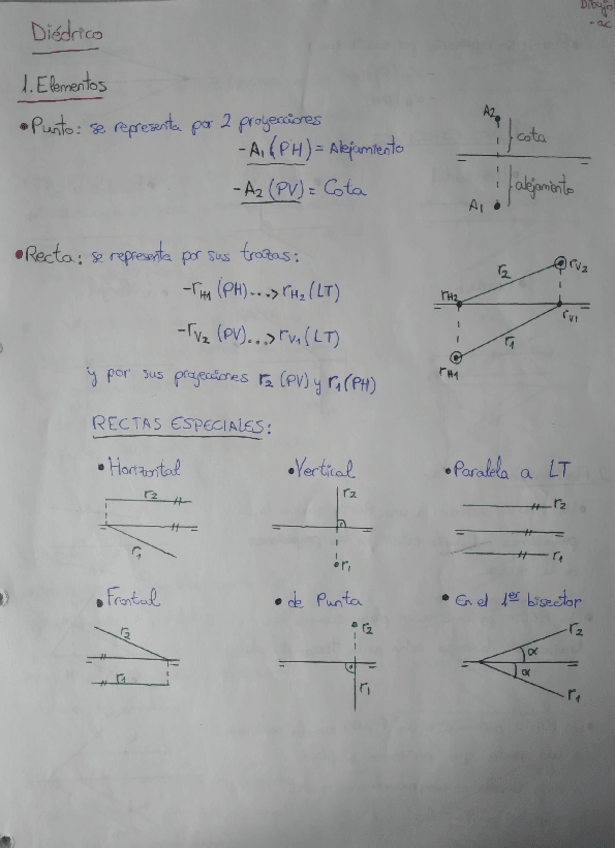 Dibujo
Diédrico
1. Elementos
• Punto: se representa por 2 proyecciones
- A₁ (PH) = Alejamiento
- A₂ (PV) = Cota
A₂
cota
alejamiento
A₁
• Recta: se representa por sus trazas:
- r_H1 (PH) ...> r_H2 (LT)
- r_V2 (PV) ...> r_V1 (LT)
y por sus proyecciones r₂ (PV) y r₁ (PH)
r₂
r_V2
r_H2
r_V1
r₁
r_H1
RECTAS ESPECIALES:
• Horizontal
r₂
r₁
• Vertical
r₂
r₁
• Paralela a LT
r₂
r₁
• Frontal
r₂
r₁
• de Punta
r₂
r₁
• En el 1er bisector
r₂
α
α
r₁